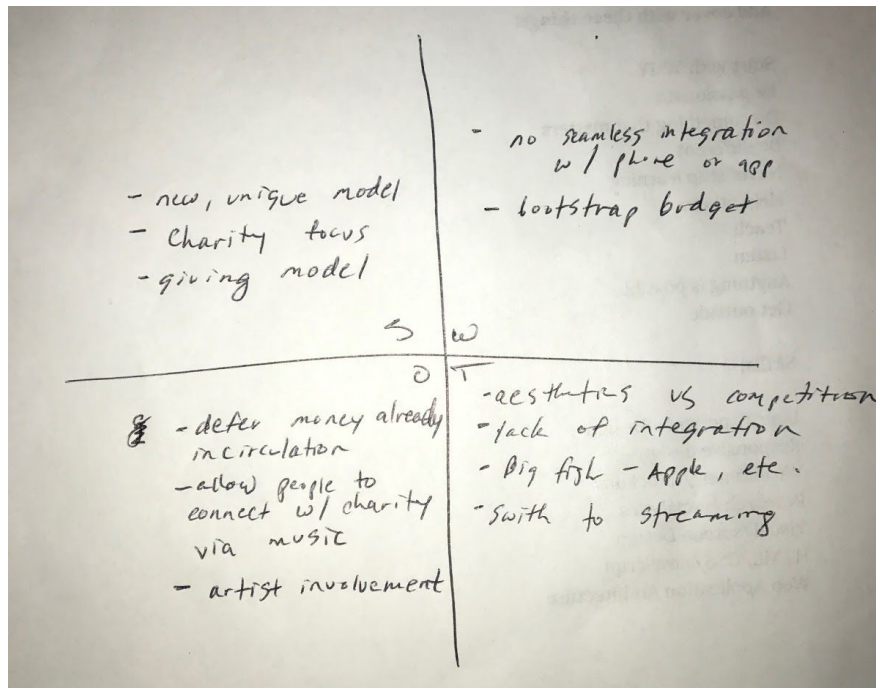 - new, unique model
- charity focus
- giving model
S
- no seamless integration
w/ phone or app
- bootstrap budget
W
O
- defer money already
in circulation
- allow people to
connect w/ charity
via music
- artist involvement
T
- aesthetics vs competition
- lack of integration
- Big fish - Apple, etc.
- swith to streaming